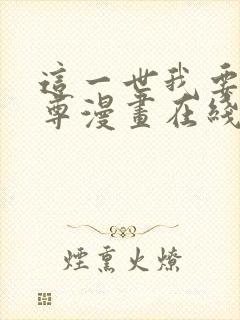 這一世我要
尊漫畫在綫
煙熏火燎